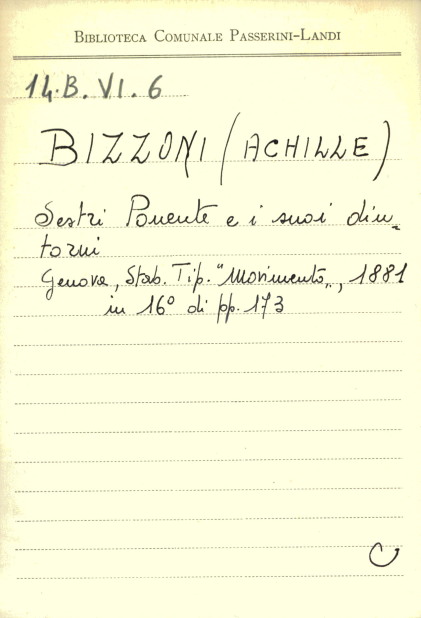 BIBLIOTECA COMUNALE PASSERINI-LANDI
14.B.VI.6
BIZZONI (ACHILLE)
Sestri Ponente e i suoi din-
torni
Genova, Stab. Tip. "Movimento", 1881
in 16° di pp. 173
C